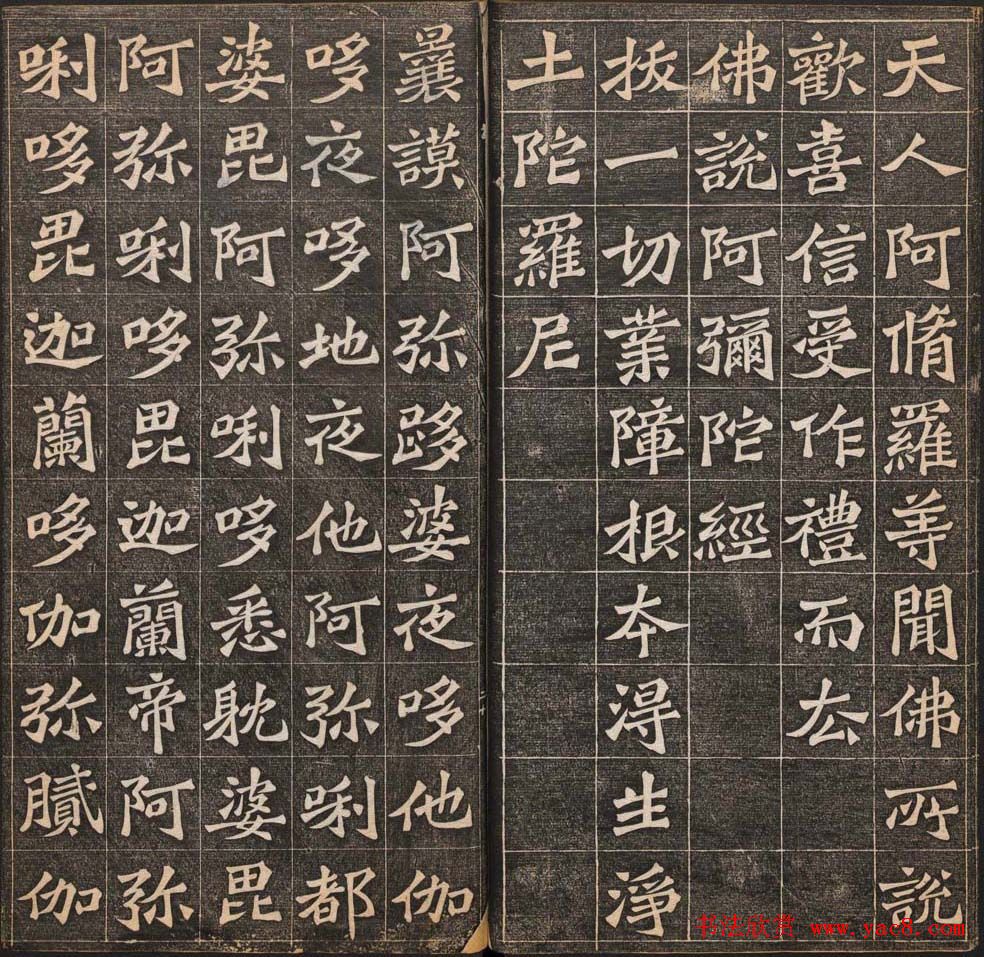 天人阿脩羅等聞佛所說
歡喜信受作禮而去
佛說阿彌陀經
拔一切業障根本得生淨
土陀羅尼
曩謨阿弥跢婆夜哆他伽
哆夜哆地夜他阿弥唎都
婆毘阿弥唎哆悉躭婆毘
阿弥唎哆毘迦蘭帝阿弥
唎哆毘迦蘭哆伽弥膩伽
书法欣赏 www.yac8.com